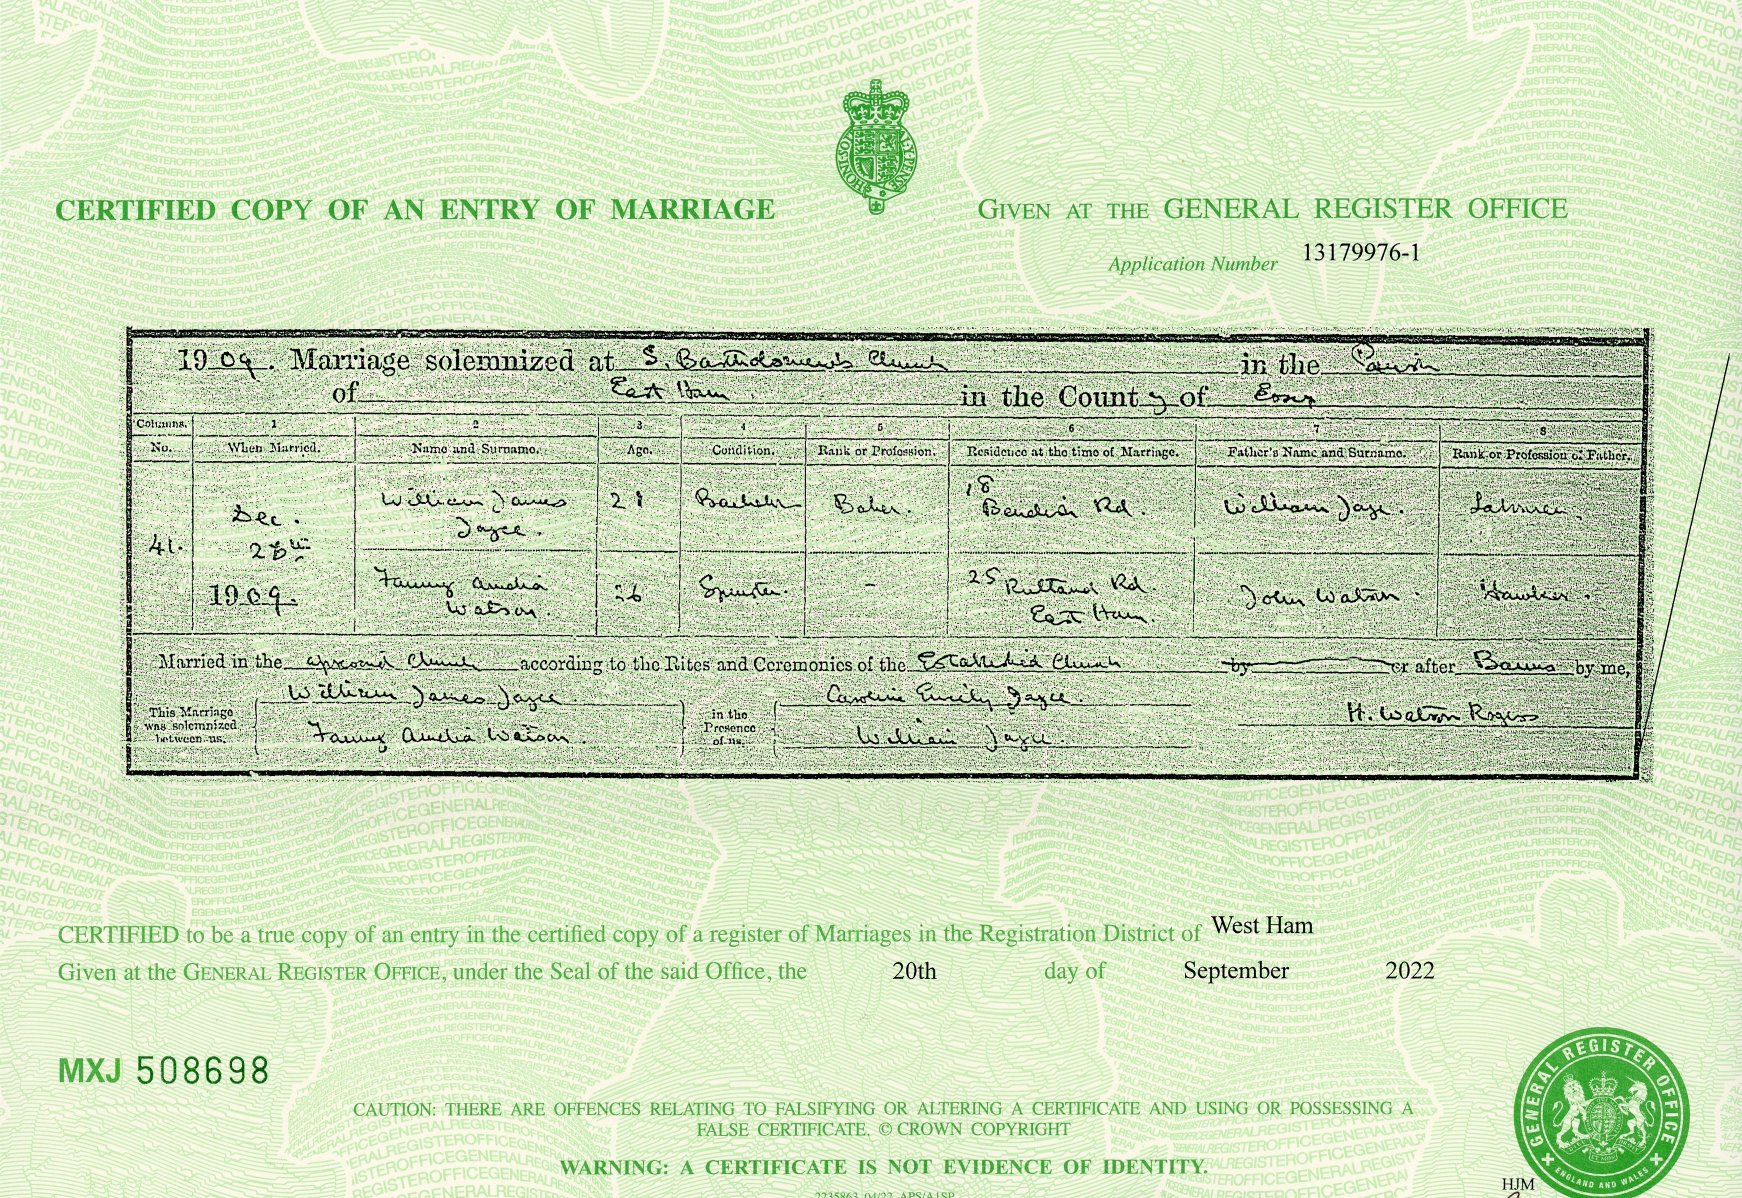 CERTIFIED COPY OF AN ENTRY OF MARRIAGE
GIVEN AT THE GENERAL REGISTER OFFICE
Application Number 13179976-1
1909. Marriage solemnized at S. Bartholomew's Church in the Parish
of East Ham in the County of Essex
Columns. 1 2 3 4 5 6 7 8
No. When Married. Name and Surname. Age. Condition. Rank or Profession. Residence at the time of Marriage. Father's Name and Surname. Rank or Profession of Father.
41. Dec. 1909.
William James Jayce. 21 Bachelor Baker. 18 Rd. William Jayce.
Fanny Amelia Watson. 26 Spinster. - 25 Rutland Rd. East Ham. John Watson. Hawker.
Married in the Church according to the Rites and Ceremonies of the Established Church by or after Banns by me,
This Marriage was solemnized between us, William James Jayce Fanny Amelia Watson. in the Presence of us, Caroline Emily Jayce. William Jayce. H. Watson Rogers
CERTIFIED to be a true copy of an entry in the certified copy of a register of Marriages in the Registration District of West Ham
Given at the GENERAL REGISTER OFFICE, under the Seal of the said Office, the 20th day of September 2022
MXJ 508698
CAUTION: THERE ARE OFFENCES RELATING TO FALSIFYING OR ALTERING A CERTIFICATE AND USING OR POSSESSING A
FALSE CERTIFICATE. © CROWN COPYRIGHT
WARNING: A CERTIFICATE IS NOT EVIDENCE OF IDENTITY.
GENERAL REGISTER OFFICE
ENGLAND AND WALES
HJM